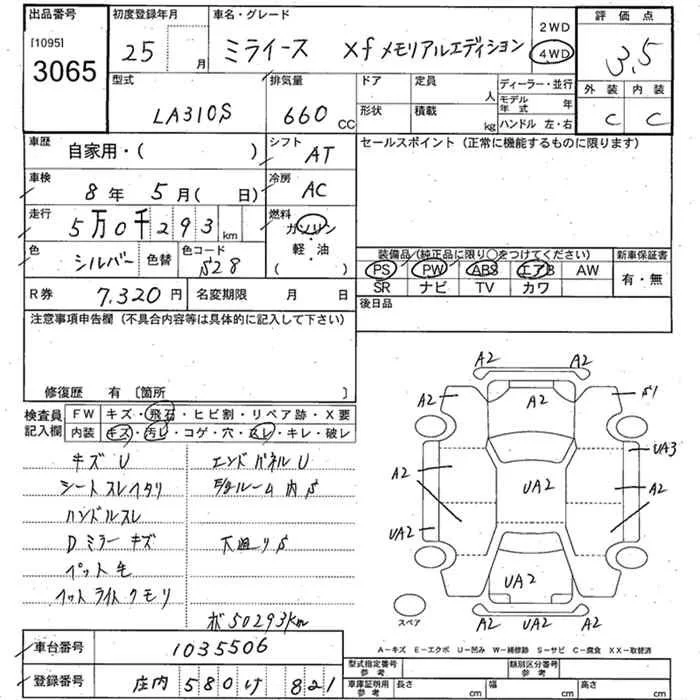 出品番号
[1095]
3065
初度登録年月
25 月
車名・グレード
ミライース Xf メモリアルエディション
2WD
4WD
評価点
3.5
外装 内装
C C
型式
LA310S
排気量
660 CC
ドア 定員
人
形状 積載
kg
ディーラー・並行
モデル年式 年
ハンドル 左・右
車歴
自家用・( )
シフト
AT
車検
8年 5月( 日)
冷房
AC
走行
5万0千293km
燃料
ガソリン
・
軽・油
( )
色
シルバー
色替
色コード
S28
R券 7,320円 名変期限 月 日
セールスポイント(正常に機能するものに限ります)
装備品(純正品に限り○をつけてください)
PS PW ABS エアB AW
SR ナビ TV カワ
新車保証書
有・無
後日品
注意事項申告欄(不具合内容等は具体的に記入して下さい)
修復歴 有〔箇所 〕
検査員記入欄
FW キズ・飛石・ヒビ割・リペア跡・X要
内装 キズ・汚レ・コゲ・穴・スレ・キレ・破レ
キズU
シートスレヘタリ
ハンドルスレ
Dミラーキズ
ペット毛
ヘットライトクモリ
エンドパネルU
内S
下廻りS
50293km
A2 A2
A2 A2 S1
UA3
A2 UA2 A2
UA2
UA2
A2 UA2 A2
スペア
A-キズ E-エクボ U-凹み W-補修跡 S-サビ C-腐食 XX-取替済
車台番号 1035506
登録番号 庄内 580 け 821
型式指定番号 参考
類別区分番号 参考
車庫証明用 参考 長さ cm 幅 cm 高さ cm